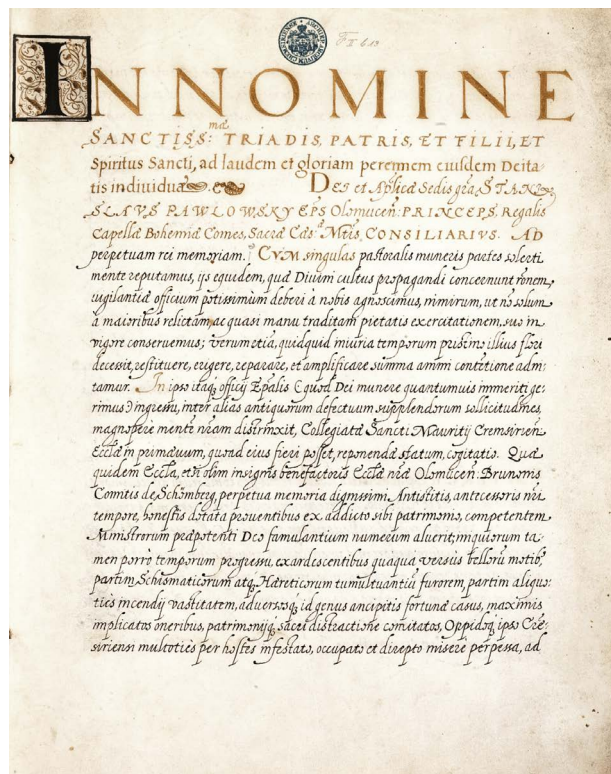 F II b 13
IN NOMINE
SANCTISS:mæ TRIADIS, PATRIS, ET FILII, ET
Spiritus Sancti, ad laudem et gloriam perennem eiusdem Deita-
tis individuæ. Dei et Aplicæ Sedis gra, STANI-
SLAVS PAWLOWSKY EPS Olomucen: PRINCEPS, Regalis
Capellæ Bohemiæ Comes, Sacræ Cæs: Mtis, CONSILIARIVS. AD
perpetuam rei memoriam. CVM singulas pastoralis muneris partes solerti
mente reputamus, ijs equidem, quæ Divini cultus propagandi concernunt ronem,
vigilantiæ officium potissimum deberi à nobis agnoscimus, nimirum, ut nō solum
à maioribus relictam, ac quasi manu traditam pietatis exercitationem, suo in
vigore conservemus; verumetiā, quidquid iniuria temporum pristino illius flori
decessit, restituere, erigere, reparare, et amplificare summa animi contētione adni-
tamur. In ipso itaq, officij Epalis (quod Dei munere quantumvis immeriti ge-
rimus) ingressu, inter alias antiquorum defectuum supplendorum sollicitudines,
magnopere mente nram distrinxit, Collegiatæ Sancti Mauritij Cremsirien
Ecclæ in primævum, quoad eius fieri posset, reponendæ statum, cogitatio. Quæ
quidem Eccla, etsi olim insignis benefactoris Ecclæ nræ Olomucen: Brunonis
Comitis de Schömberg, perpetua memoria dignissimi Antistitis, antecessoris nri
tempore, honestis dotata proventibus ex addicto sibi patrimonio, competentem
Ministrorum præpotenti Deo famulantium numerum aluerit; iniquiorum ta-
men porrò temporum progressu, exardescentibus quaqua versùs bellorū motib,
partim Schismaticorum atq, Hæreticorum tumultuantiū furorem, partim aliquo-
ties incendij vastitatem, adversosq, id genus ancipitis fortunæ casus, maximis
implicatos oneribus, patrimonijq, sacri distractione comitatos, Oppidoq, ipso Cre-
siriensi multoties per hostes infestato, occupato et direpto misere perpessa, ad